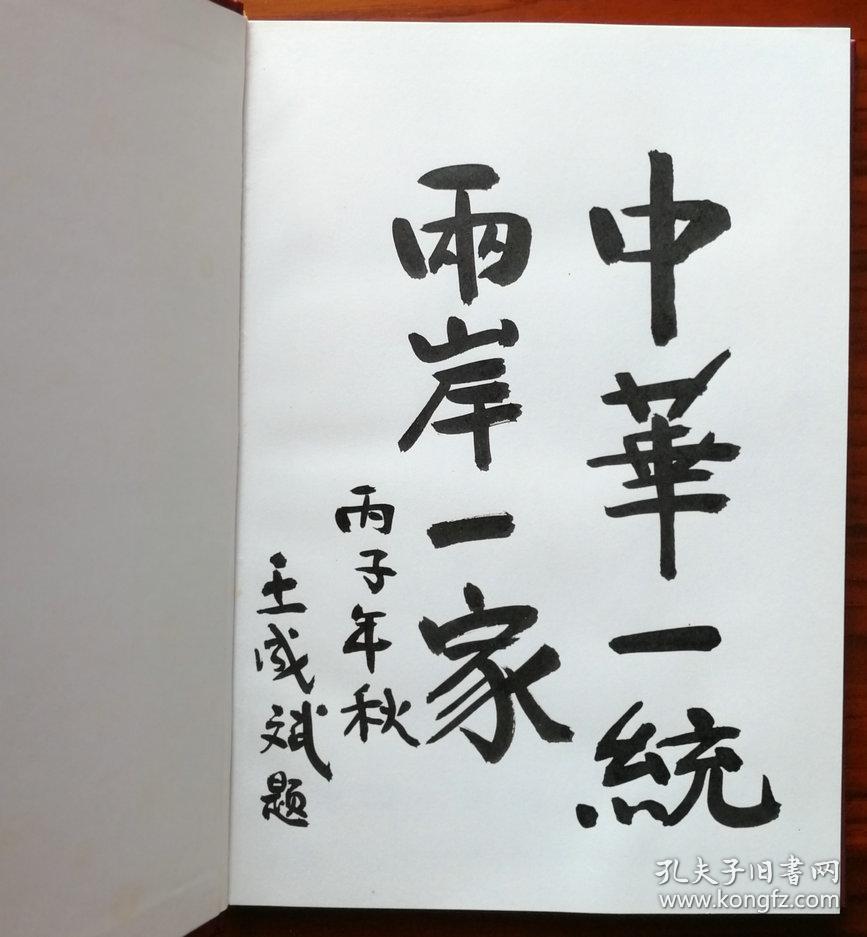 中華一統
兩岸一家
丙子年秋
王成斌题
孔夫子旧書网
www.kongfz.com